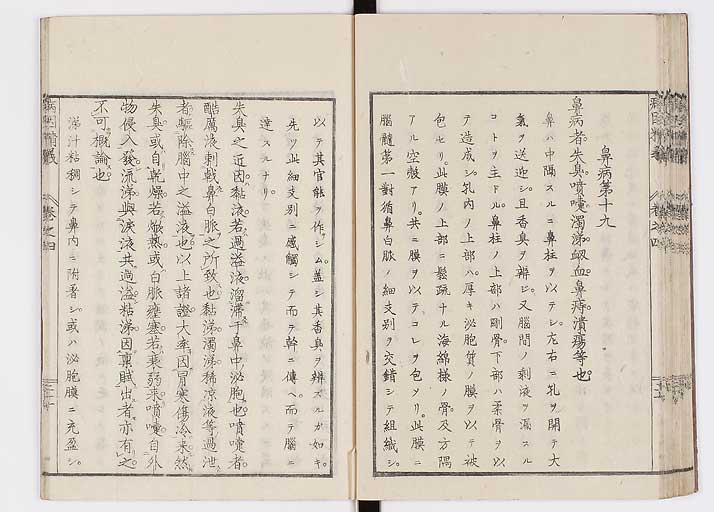 鼻病第十九
鼻病者。失臭。噴嚏。濁涕。衂血。鼻痔。潰瘍等也。
鼻ハ中隔スルニ鼻柱ヲ以テシ。左右ニ孔ヲ開テ大
氣ヲ送迎シ。且香臭ヲ辨シ。又腦間ノ剰液ヲ漏スル
コトヲ主ドル。鼻柱ノ上部ハ剛骨。下部ハ柔骨ヲ以
テ造成シ。孔内ノ上部ハ。厚キ泌胞質ノ膜ヲ以テ被
包セリ。此膜ノ上部ニ鬆疏ナル海綿様ノ骨。及方隅
アル空殻アリ。共ニ膜ヲ以テコレヲ包ツリ。此膜ニ
腦髓第一對循鼻白脈ノ細支別ヲ交錯シテ組織シ。
以テ其官能ヲ作サシム。蓋シ其香臭ヲ辨スルガ如キ。
先ツ此細支別ニ感觸シテ。而テ幹ニ傳ヘ。而テ腦ニ
達スルナリ。
失臭之近因。黏液若過溢液溜滯于鼻中泌胞也。噴嚏者。
酷厲液刺戟鼻白脈之所致也。黏涕濁涕稀涼液等過泄
者。驅除腦中之溢液也。以上諸證。大率因冒寒傷冷来。然
失臭。或自乾燥若焮熱。或白脈壅塞若衰弱来。噴嚏。自外
物侵入發。流涕。與淚液共過溢。粘涕。因稟賦出者亦有之。
不可概論也。
涕汁粘稠シテ鼻内ニ附着シ。或ハ泌胞膜ニ充盈シ。
卷之四